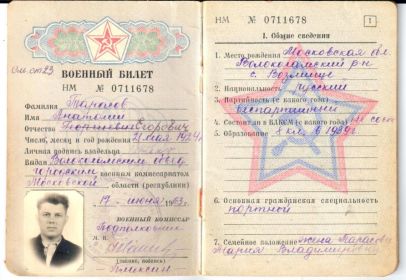 ВОЕННЫЙ БИЛЕТ
НМ № 0711678
Фамилия Тарасов
Имя Анатолий
Отчество Егорович
Число, месяц и год рождения 21 мая
Личная подпись владельца
Выдан Волоколамским объед.
городским военным комиссариатом
Московской области (республики)
19 июня 1963 г.
ВОЕННЫЙ КОМИССАР
Подполковник
М. П.
(звание, подпись)
НМ № 0711678
1
I. Общие сведения
1. Место рождения Московская обл.
Волоколамский р-н
с.
2. Национальность русский
3. Партийность (с какого года)
беспартийный
4. Состоял в ВЛКСМ (с какого года) не сост.
5. Образование 8 кл. в
6. Основная гражданская специальность
портной
7. Семейное положение жена Тарасова
Мария Владимировна